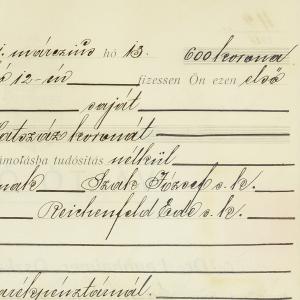 márczius hó 13. 600 korona
12-én fizessen Ön ezen első
saját
hatszáz koronát
számolásba tudósítás nélkül
Szak József s. k.
Reichenfeld Ede s. k.
takarékpénztárnál.